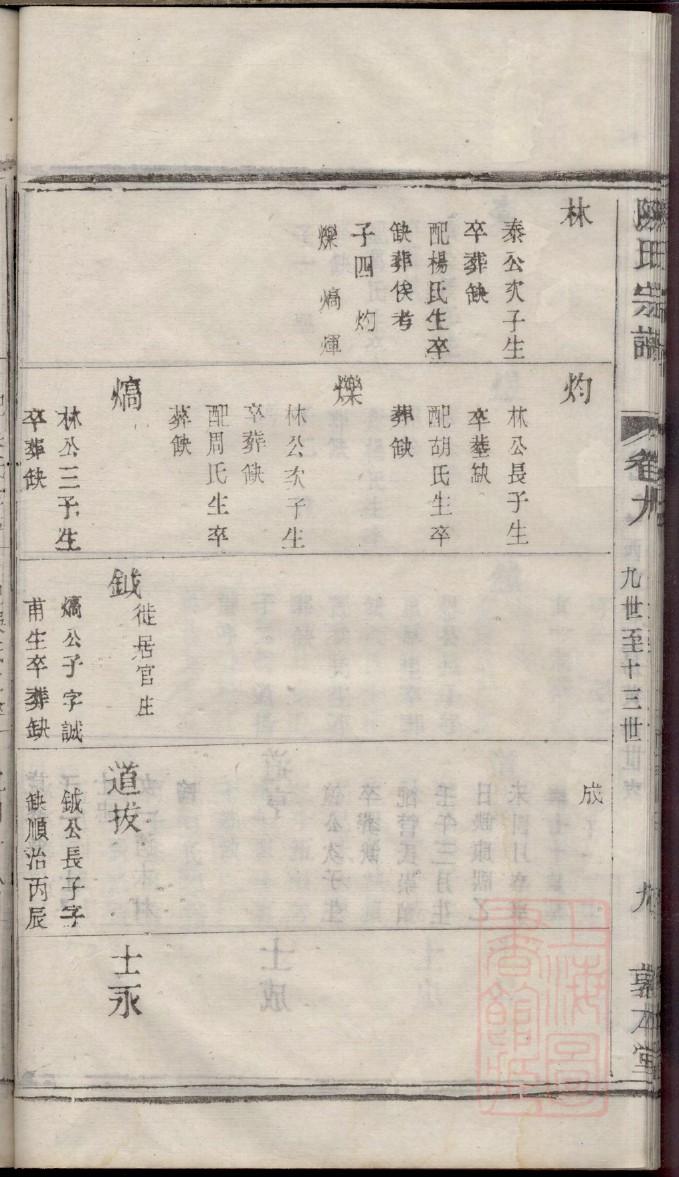 氏宗譜
卷九
九世至十三世
九
林
泰公次子生
卒葬缺
配楊氏生卒
缺葬俟考
子四 灼
爍 熇 煇
灼
林公長子生
卒葬缺
配胡氏生卒
葬缺
爍
林公次子生
卒葬缺
配周氏生卒
葬缺
熇
林公三子生
卒葬缺
鉞
徙居官庄
熇公子字誠
甫生卒葬缺
成
道拔
鉞公長子字
缺順治丙辰
士永
上海圖書館藏